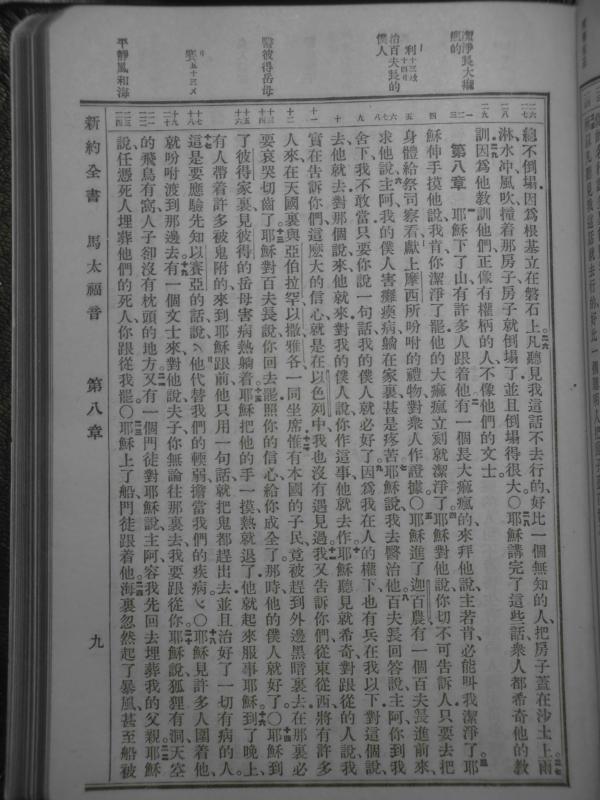 潔淨長大痲瘋的
治百夫長的僕人
醫彼得岳母
平靜風和海
總不倒塌、因爲根基立在磐石上。凡聽見我這話不去行的、好比一個無知的人、把房子蓋在沙土上、雨
淋、水冲、風吹、撞着那房子、房子就倒塌了、並且倒塌得很大。〇耶穌講完了這些話、衆人都希奇他的教
訓、因爲他教訓他們、正像有權柄的人、不像他們的文士。
第八章 耶穌下了山、有許多人跟着他。有一個長大痲瘋的、來拜他說、主若肯、必能叫我潔淨了。耶
穌伸手摸他說、我肯、你潔淨了罷、他的大痲瘋立刻就潔淨了。耶穌對他說、你切不可告訴人、只要去把
身體給祭司察看、獻上摩西所吩咐的禮物、對衆人作證據。〇耶穌進了迦百農、有一個百夫長進前來、
求他說、主阿、我的僕人害癱瘓病、躺在家裏、甚是疼苦。耶穌說、我去醫治他。百夫長回答說、主阿、你到我
舍下、我不敢當、只要你說一句話、我的僕人就必好了。因爲我在人的權下、也有兵在我以下、對這個說
去、他就去、對那個說來、他就來、對我的僕人說、你作這事、他就去作。耶穌聽見就希奇、對跟從的人說、我
實在告訴你們、這麽大的信心、就是在以色列中、我也沒有遇見過。我又告訴你們、從東從西、將有許多
人來、在天國裏與亞伯拉罕、以撒、雅各、一同坐席。惟有本國的子民、竟被趕到外邊黑暗裏去、在那裏必
要哀哭切齒了。耶穌對百夫長說、你回去罷、照你的信心、給你成全了。那時、他的僕人就好了。〇耶穌到
了彼得家裏、見彼得的岳母害熱病躺着。耶穌把他的手一摸、熱就退了、他就起來服事耶穌。到了晚上、
有人帶着許多被鬼附的、來到耶穌跟前、他只用一句話、就把鬼都趕出去、並且治好了一切有病的人。
這是要應驗先知以賽亞的話、說、他代替我們的軟弱、擔當我們的疾病。〇耶穌見許多人圍着他、
就吩咐渡到那邊去。有一個文士來、對他說、夫子、你無論往那裏去、我要跟從你。耶穌說、狐狸有洞、天空
的飛鳥有窩、人子卻沒有枕頭的地方。又有一個門徒對耶穌說、主阿、容我先回去埋葬我的父親。耶穌
說、任憑死人埋葬他們的死人、你跟從我罷。〇耶穌上了船、門徒跟着他。海裏忽然起了暴風、甚至船被
新約全書 馬太福音 第八章 九